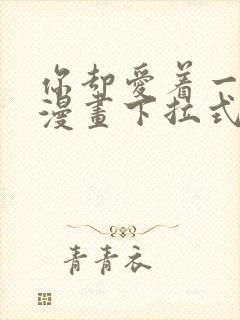 你却愛着一
漫畫下拉式
青青衣